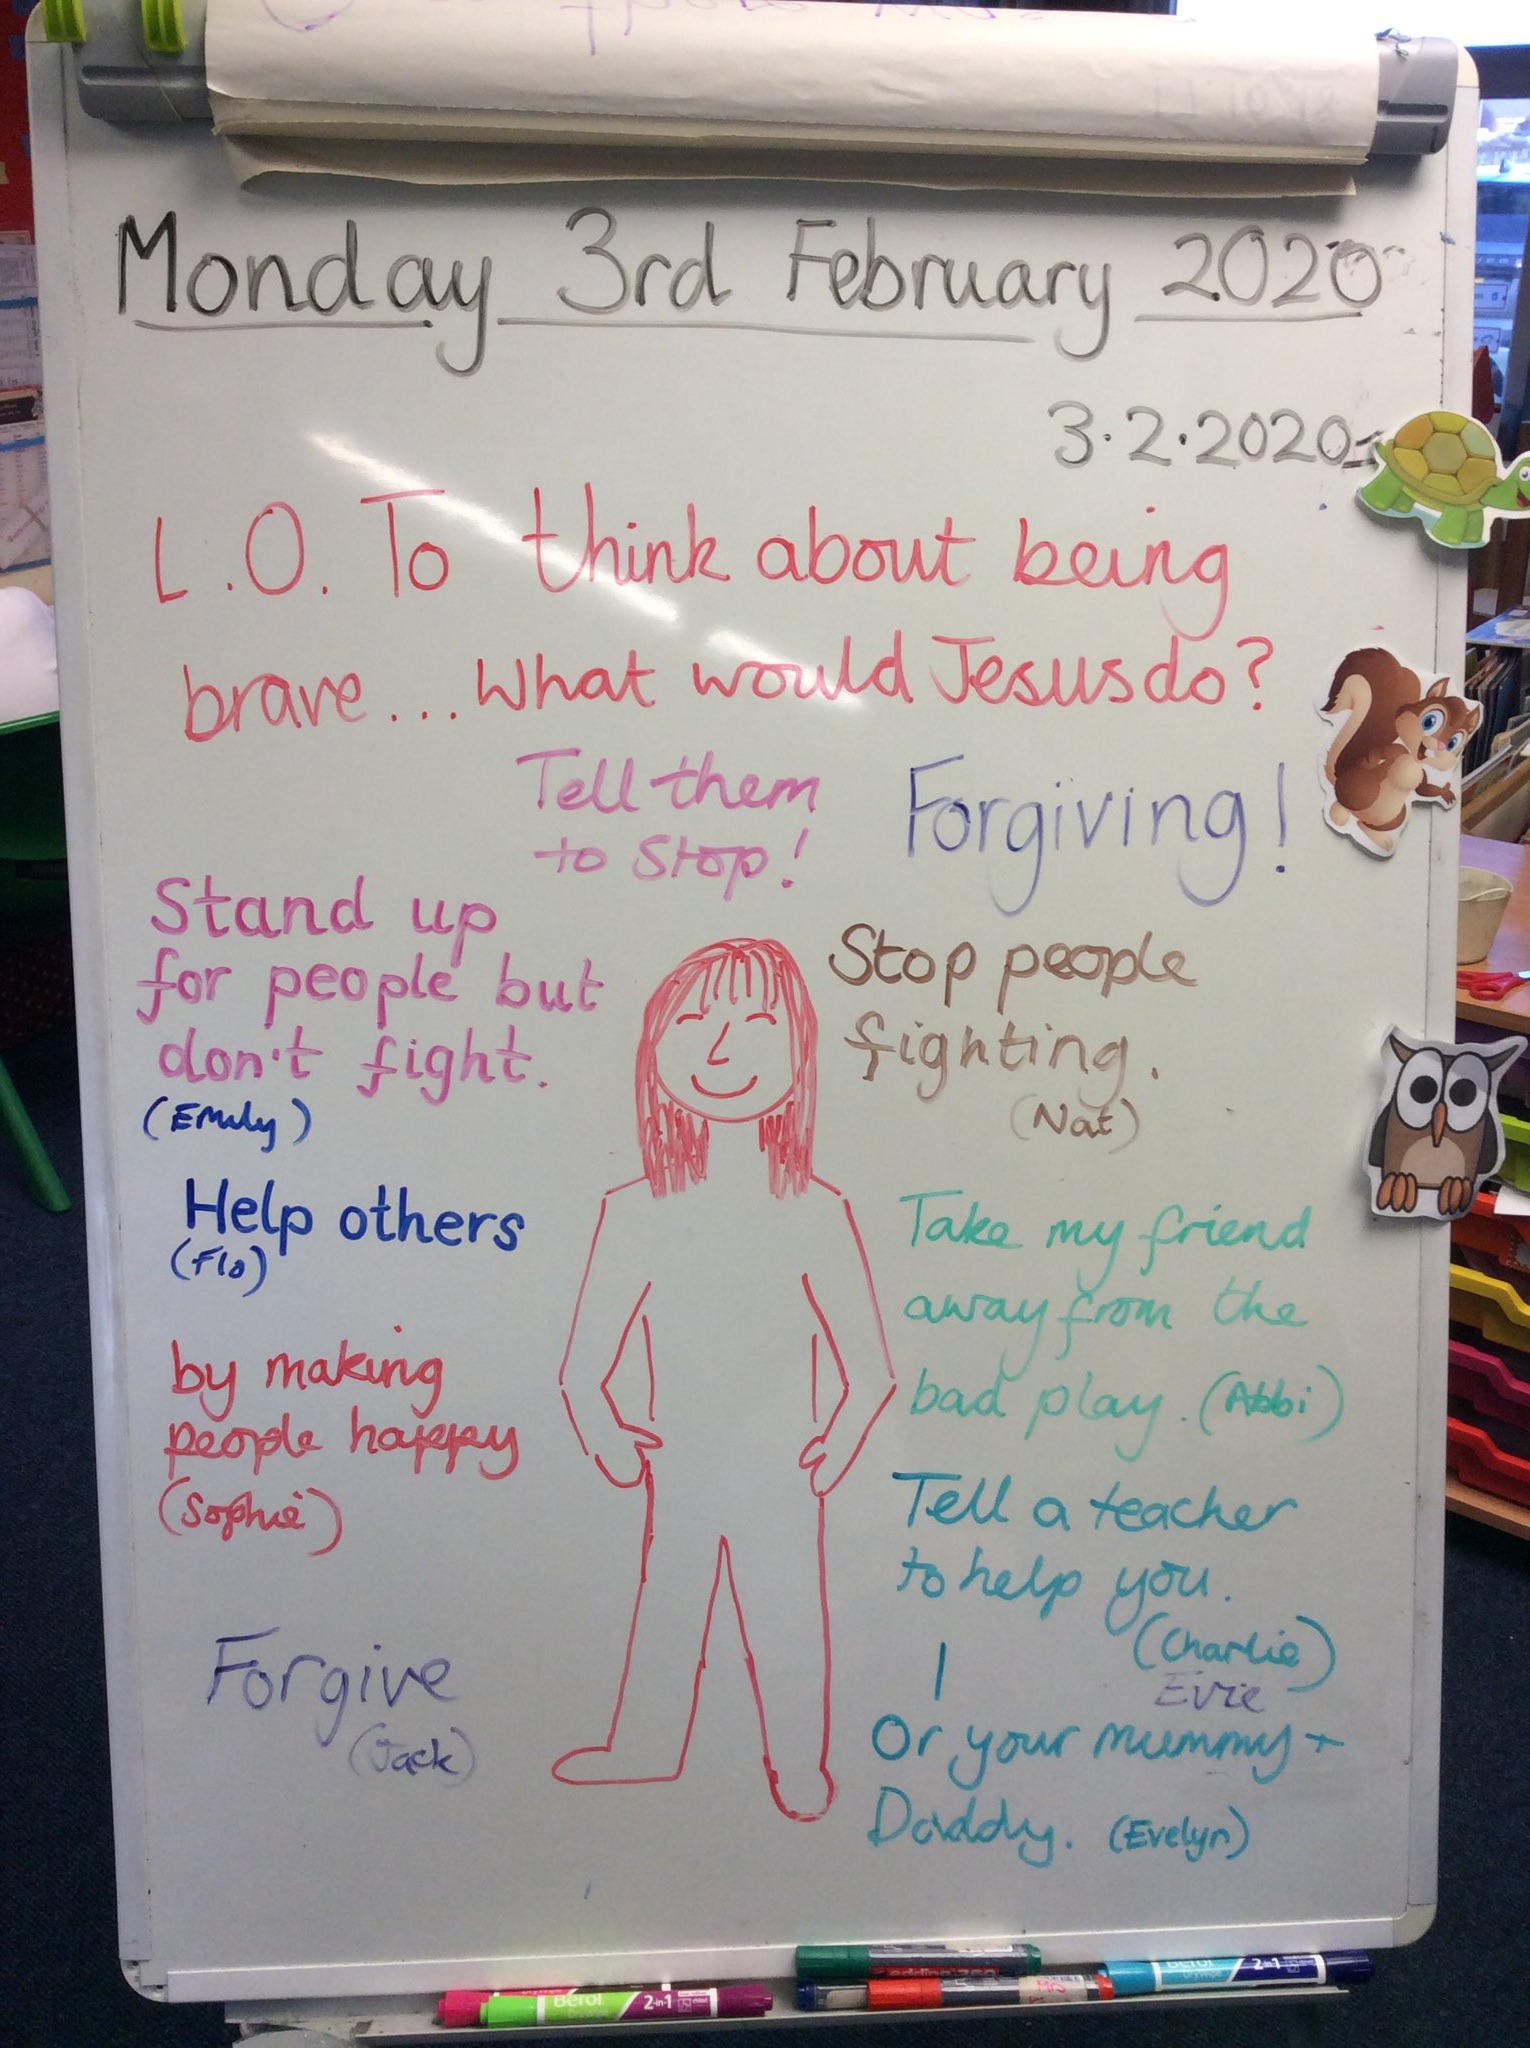 Monday 3rd February 2020
3.2.2020
L.O. To think about being
brave... What would Jesus do?
Tell them
to stop!
Forgiving!
Stand up
for people but
don't fight.
(Emily)
Stop people
fighting.
(Nat)
Help others
(Flo)
Take my friend
away from the
bad play. (Abbi)
by making
people happy
(Sophie)
Tell a teacher
to help you.
(Charlie)
Evie
Forgive
(Jack)
Or your mummy +
Daddy. (Evelyn)
Berol
2in1
edding 360
Berol
2in1